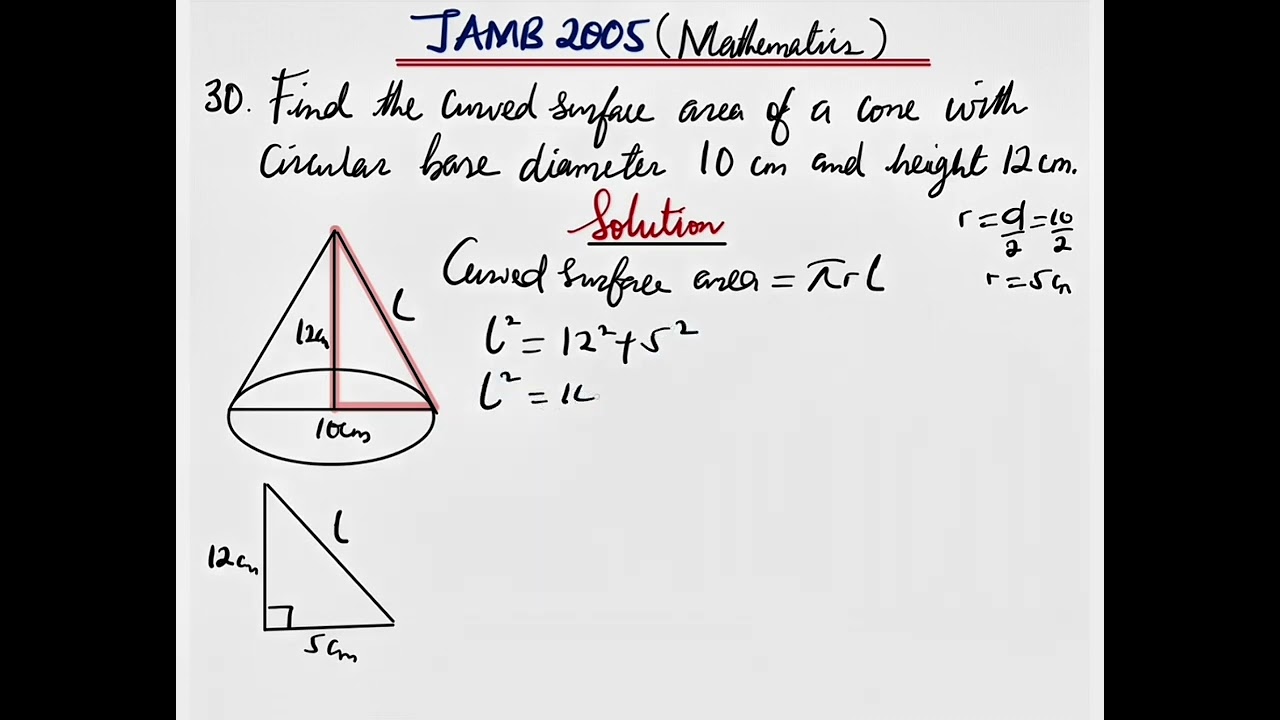 JAMB 2005 (Mathematics)
30. Find the curved surface area of a cone with
circular base diameter 10 cm and height 12 cm.
Solution
r = d/2 = 10/2
r = 5cm
Curved surface area = πrl
l² = 12² + 5²
l² = 14
12cm
l
10cm
12cm
l
5cm